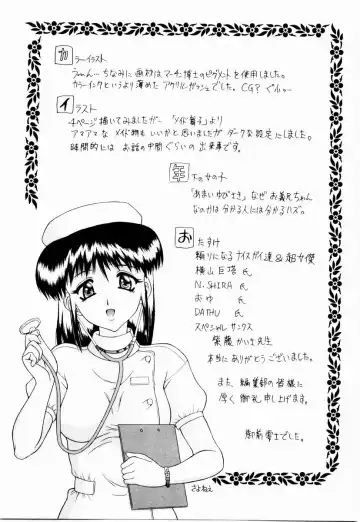 カラーイラスト
うーん… ちなみに画材はマーチン博士のピグメントを使用しました。
カラーインクというより薄めたアクリルガッシュでした。CG? ぐんゃ…
イラスト
4ページ描いてみましたが… 「メイド菖子」より
アマアマなメイド物もいいかと思いましたがダークな設定にしました。
時間的にはお話の中間ぐらいの出来事です。
年下の女の子
「あまいゆびさき」なぜお義兄ちゃん
なのかは分かる人には分かるハズ。
おたすけ
頼りになるナイスガイ達&超女傑
横山巨塔 氏
N.SHIRA 氏
おゆ 氏
DATHU 氏
スペシャルサンクス
紫龍かいせ先生
本当にありがとうございました。
また、編集部の皆様に
厚く御礼申し上げます。
御前零士でした。
さよねぇ